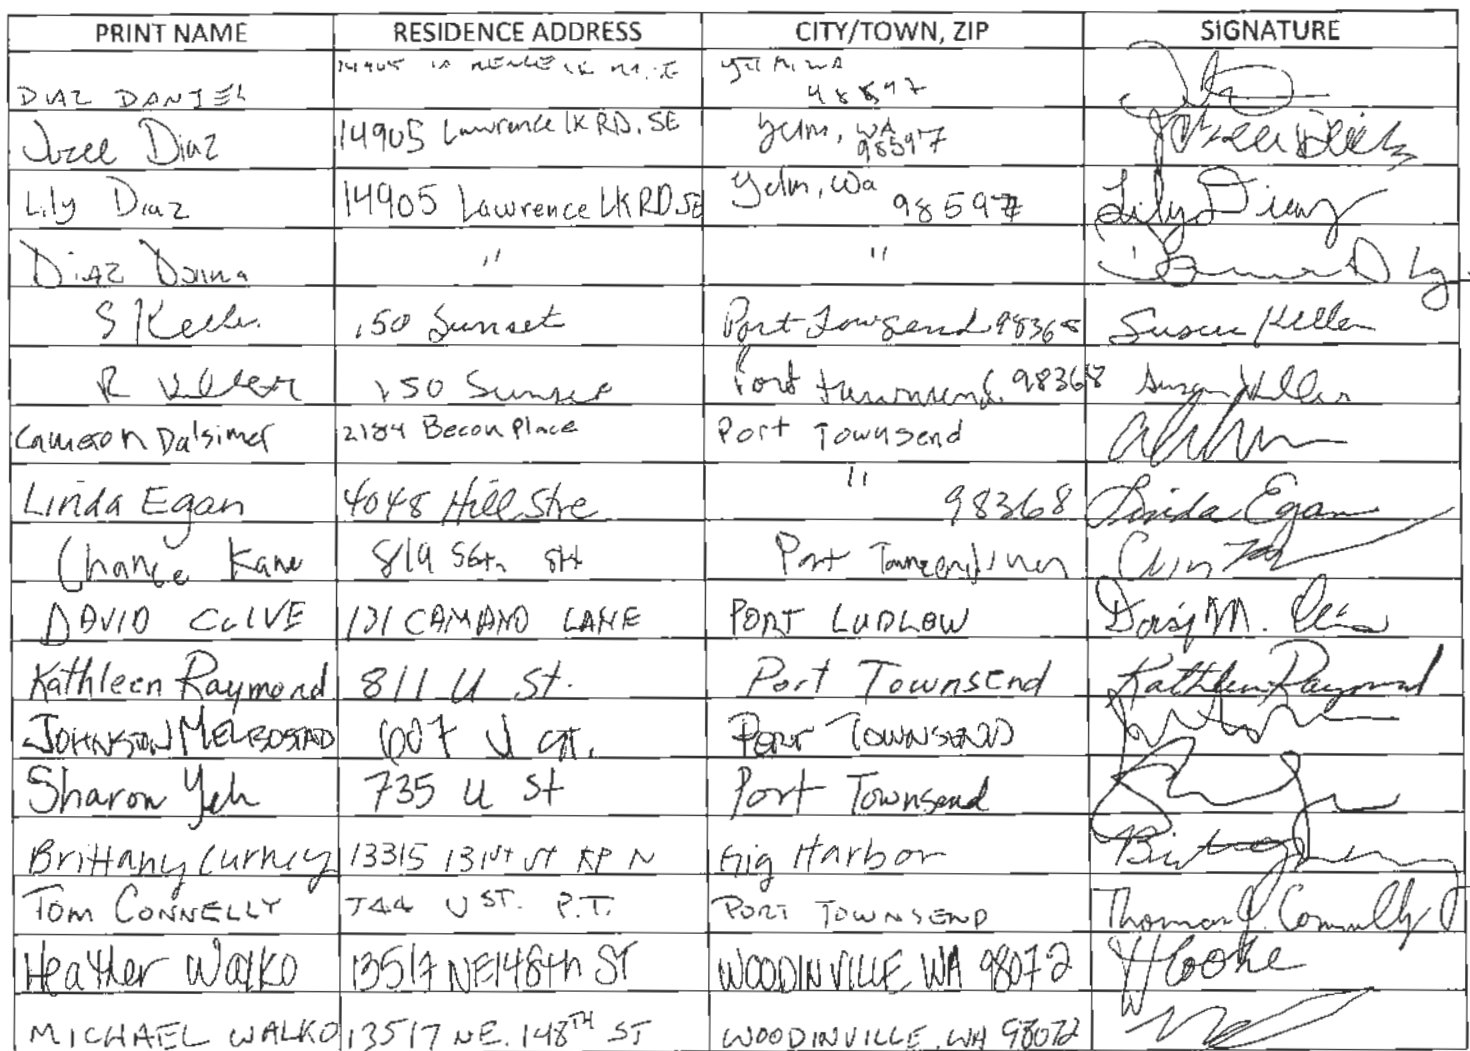 PRINT NAME RESIDENCE ADDRESS CITY/TOWN, ZIP SIGNATURE
DIAZ DANIEL 14905 WA 98597
Jozee Diaz 14905 Lawrence LK RD. SE Yelm, WA 98597
Lily Diaz 14905 Lawrence LK RD SE Yelm, Wa 98597 Lily Diaz
DIAZ Donna " "
S Keller 150 Sunset Port Townsend 98368 Susan Keller
R Keller 150 Sunset Port Townsend 98368 Susan Keller
Cameron Dalsimer 2184 Becon Place Port Townsend
Linda Egan 4048 Hill Stre " 98368 Linda Egan
Chance Kane 819 56th Port Townsend
DAVID 131 CAMANO LANE PORT LUDLOW
Kathleen Raymond 811 U St. Port Townsend Kathleen Raymond
JOHNSTON MELBOSTAD 607 U ST. PORT TOWNSEND
Sharon Yeh 735 U St Port Townsend
Brittany Curney 13315 131st St KP N Gig Harbor
TOM CONNELLY 744 U ST. P.T. PORT TOWNSEND Thomas J. Connelly
Heather Walko 13517 NE 148th ST WOODINVILLE, WA 98072 H Cooke
MICHAEL WALKO 13517 NE. 148TH ST WOODINVILLE, WA 98072